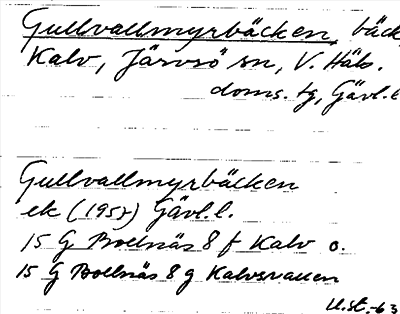 Gullvallmyrbäcken, bäck
Kalv, Järvsö sn, V. Häls.
doms. tg, Gävl. l
Gullvallmyrbäcken
ek (1957) Gävl. l.
15 G Bollnäs 8 f Kalv o.
15 G Bollnäs 8 g Kalvsvallen
U.St.-63